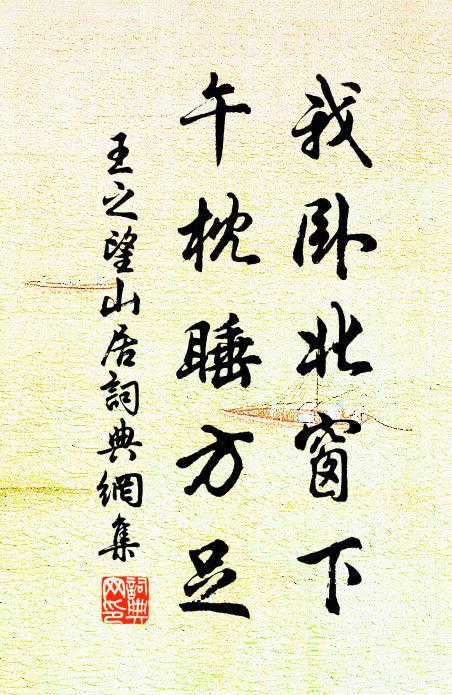 我卧北窗下
午枕睡方足
王之望山居詞典網集
詞典
网印